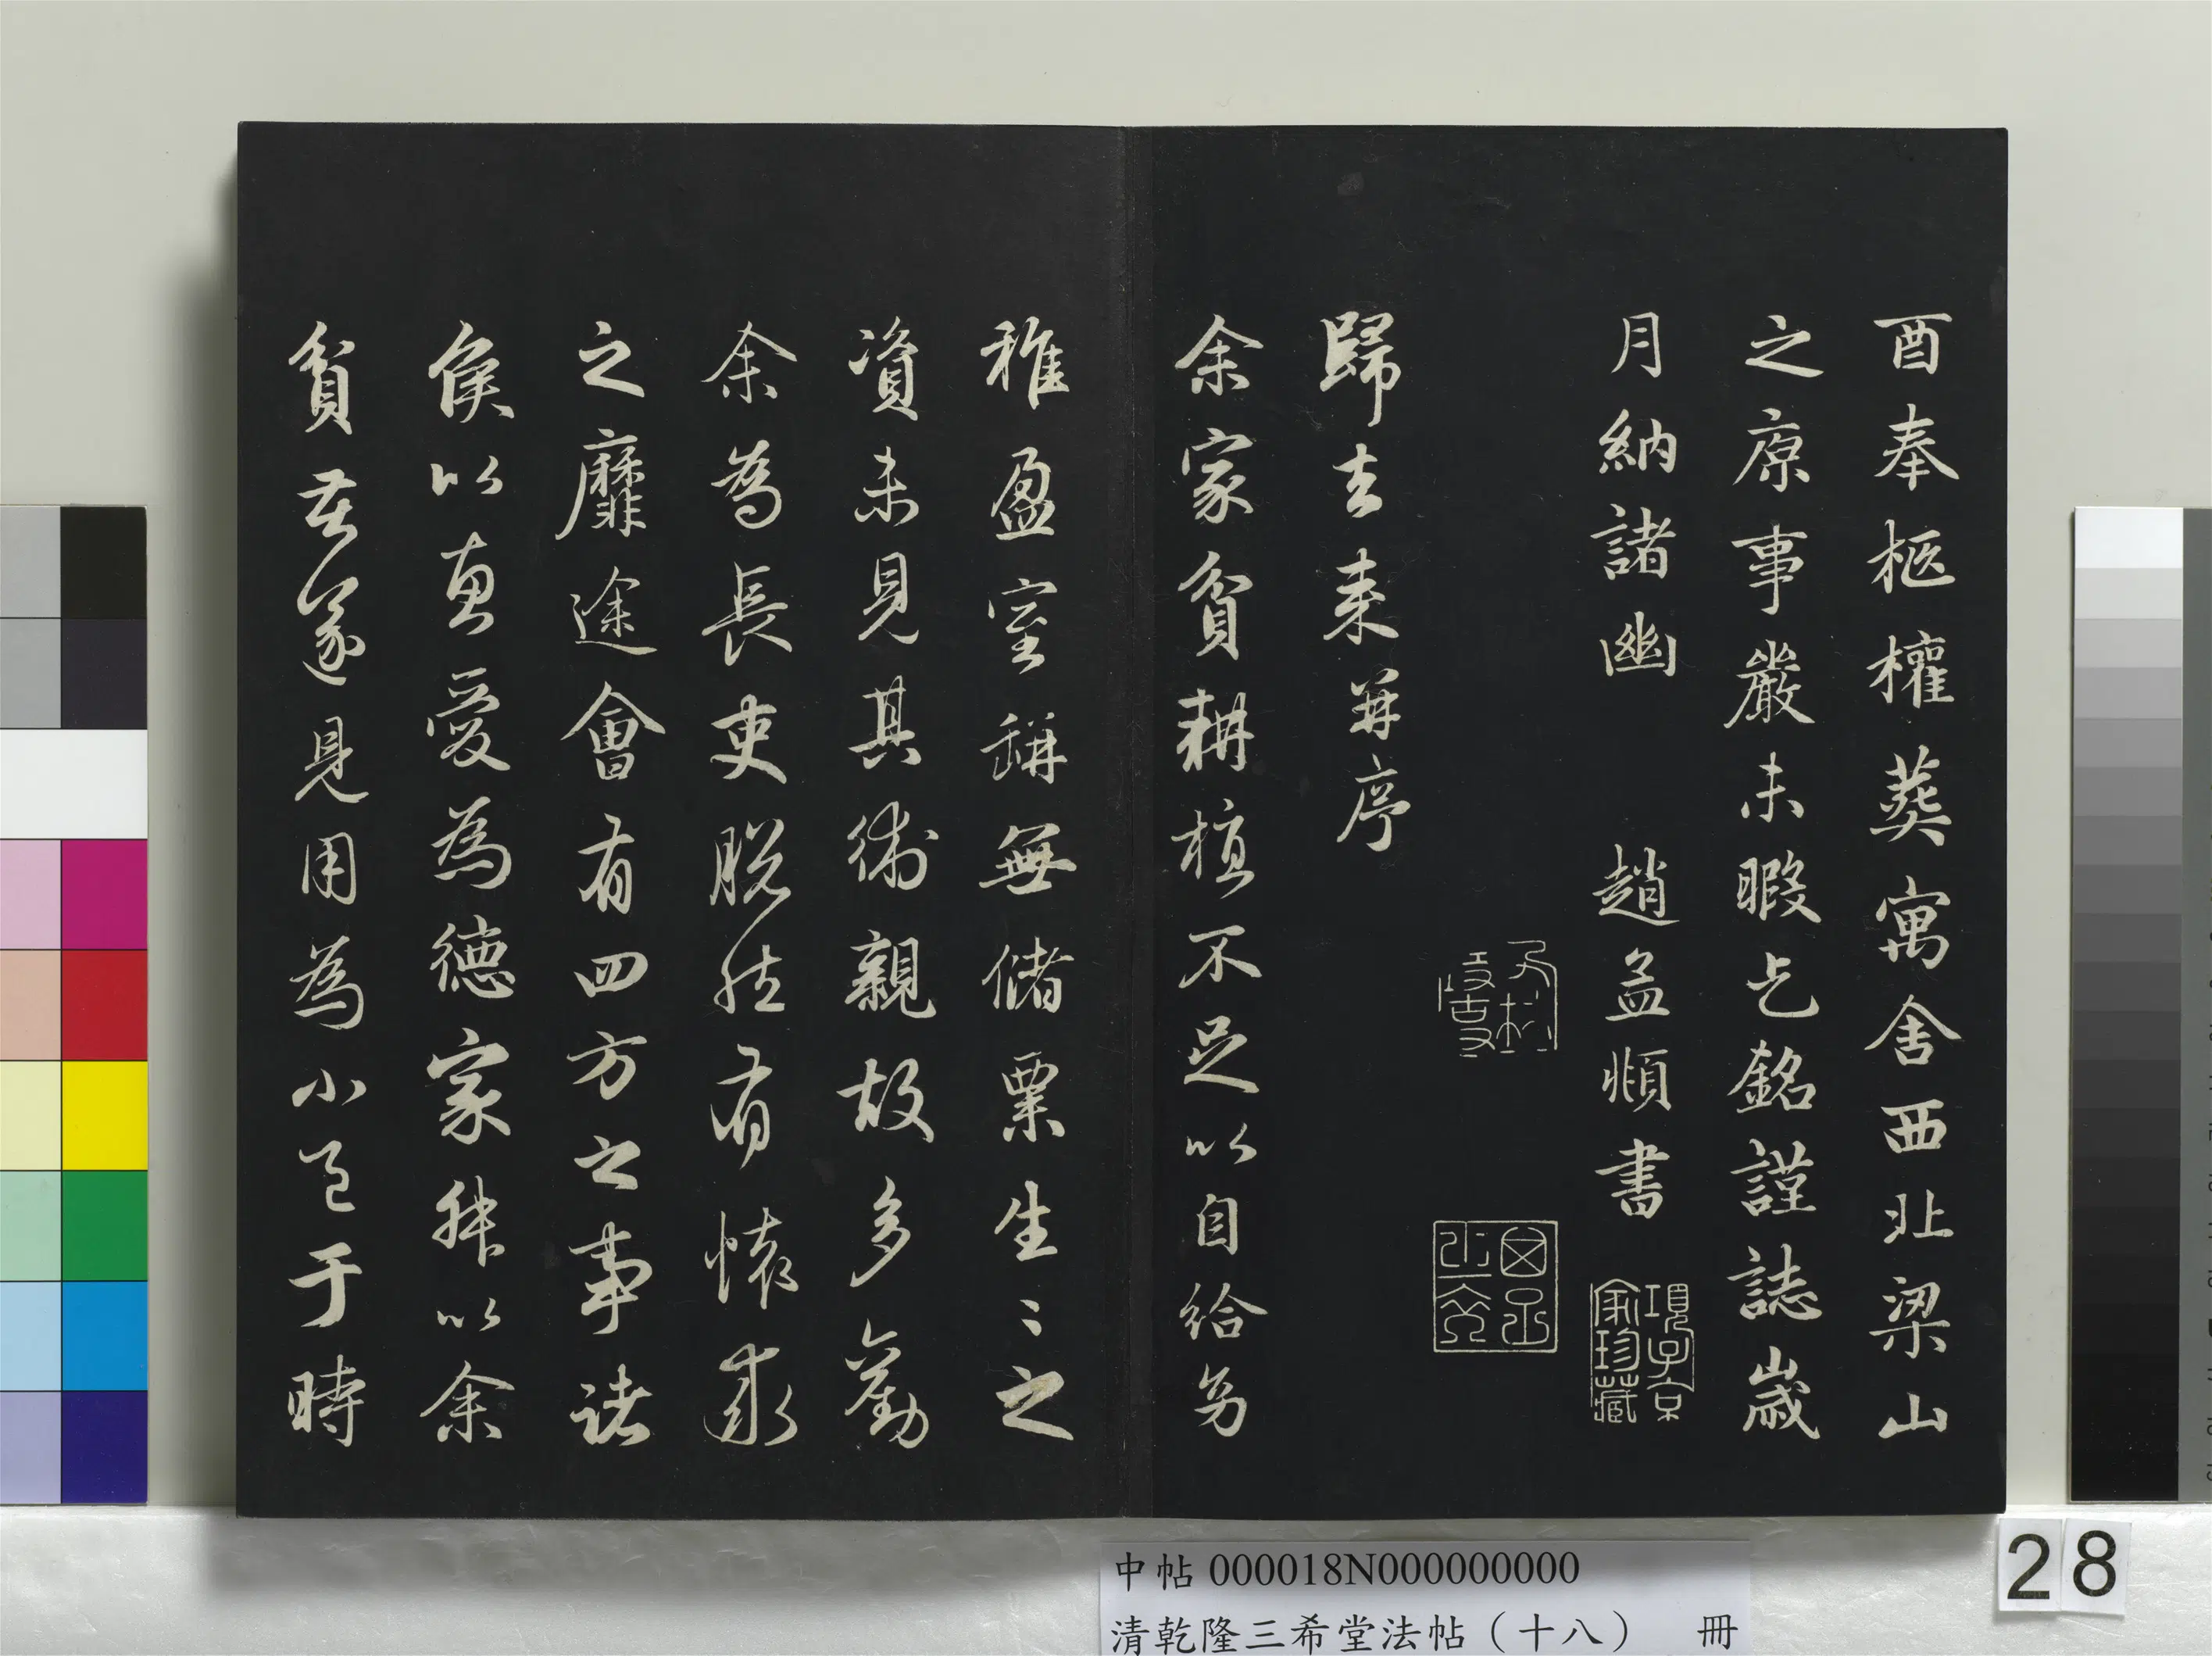 酉奉柩權葬寓舍西北梁山
之原事嚴未暇乞銘謹誌歲
月納諸幽　趙孟頫書
項子京家珍藏
歸去来并序
余家貧耕植不足以自給幼
稚盈室缾無儲粟生〻之
資未見其術親故多勸
余為長吏脱然有懷求
之靡途會有四方之事諸
侯以惠愛為德家叔以余
貧苦遂見用為小邑于時
中帖 000018N000000000
清乾隆三希堂法帖（十八）　冊
28